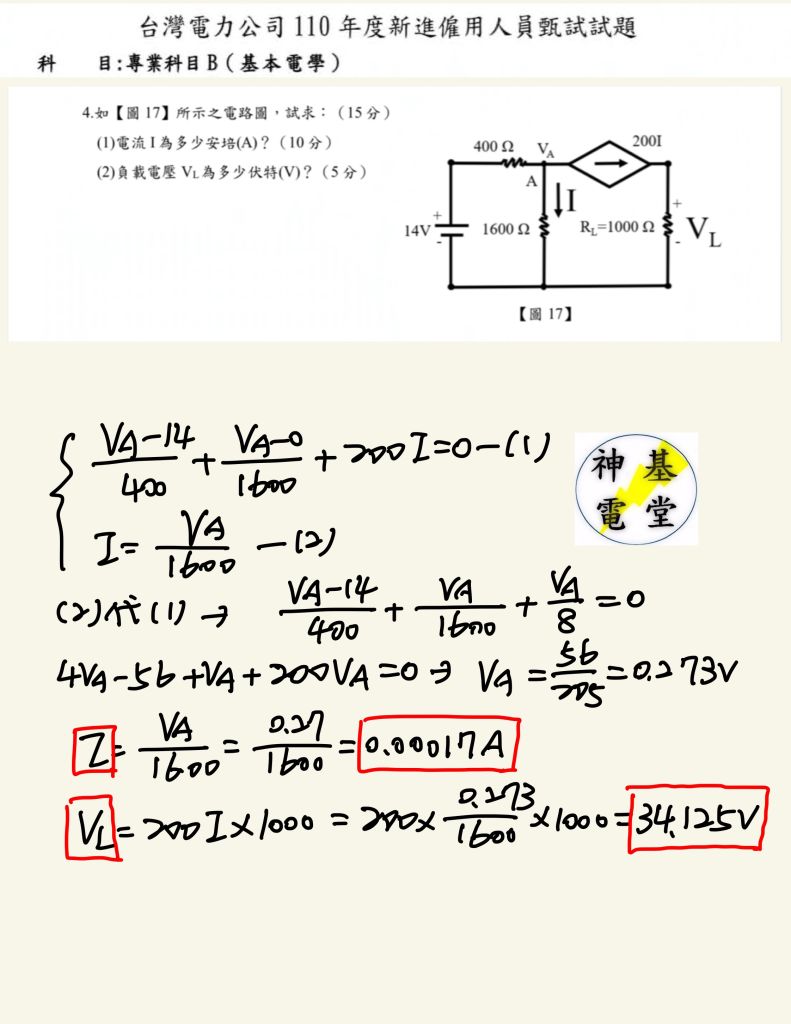 台灣電力公司 110 年度新進僱用人員甄試試題
科 目:專業科目 B（基本電學）
4.如【圖 17】所示之電路圖，試求：（15 分）
(1)電流 I 為多少安培(A)？（10 分）
(2)負載電壓 VL 為多少伏特(V)？（5 分）
400 Ω VA 200I
A I
+
14V 1600 Ω RL=1000 Ω + VL
- -
【圖 17】
VA-14/400 + VA-0/1600 + 200I=0 -(1)
I= VA/1600 -(2)
神 基
電 堂
(2)代(1) → VA-14/400 + VA/1600 + VA/8 =0
4VA-56+VA+200VA=0 → VA = 56/205 = 0.273V
I= VA/1600 = 0.27/1600 = 0.00017A
VL= 200I×1000 = 200× 0.273/1600 ×1000= 34.125V